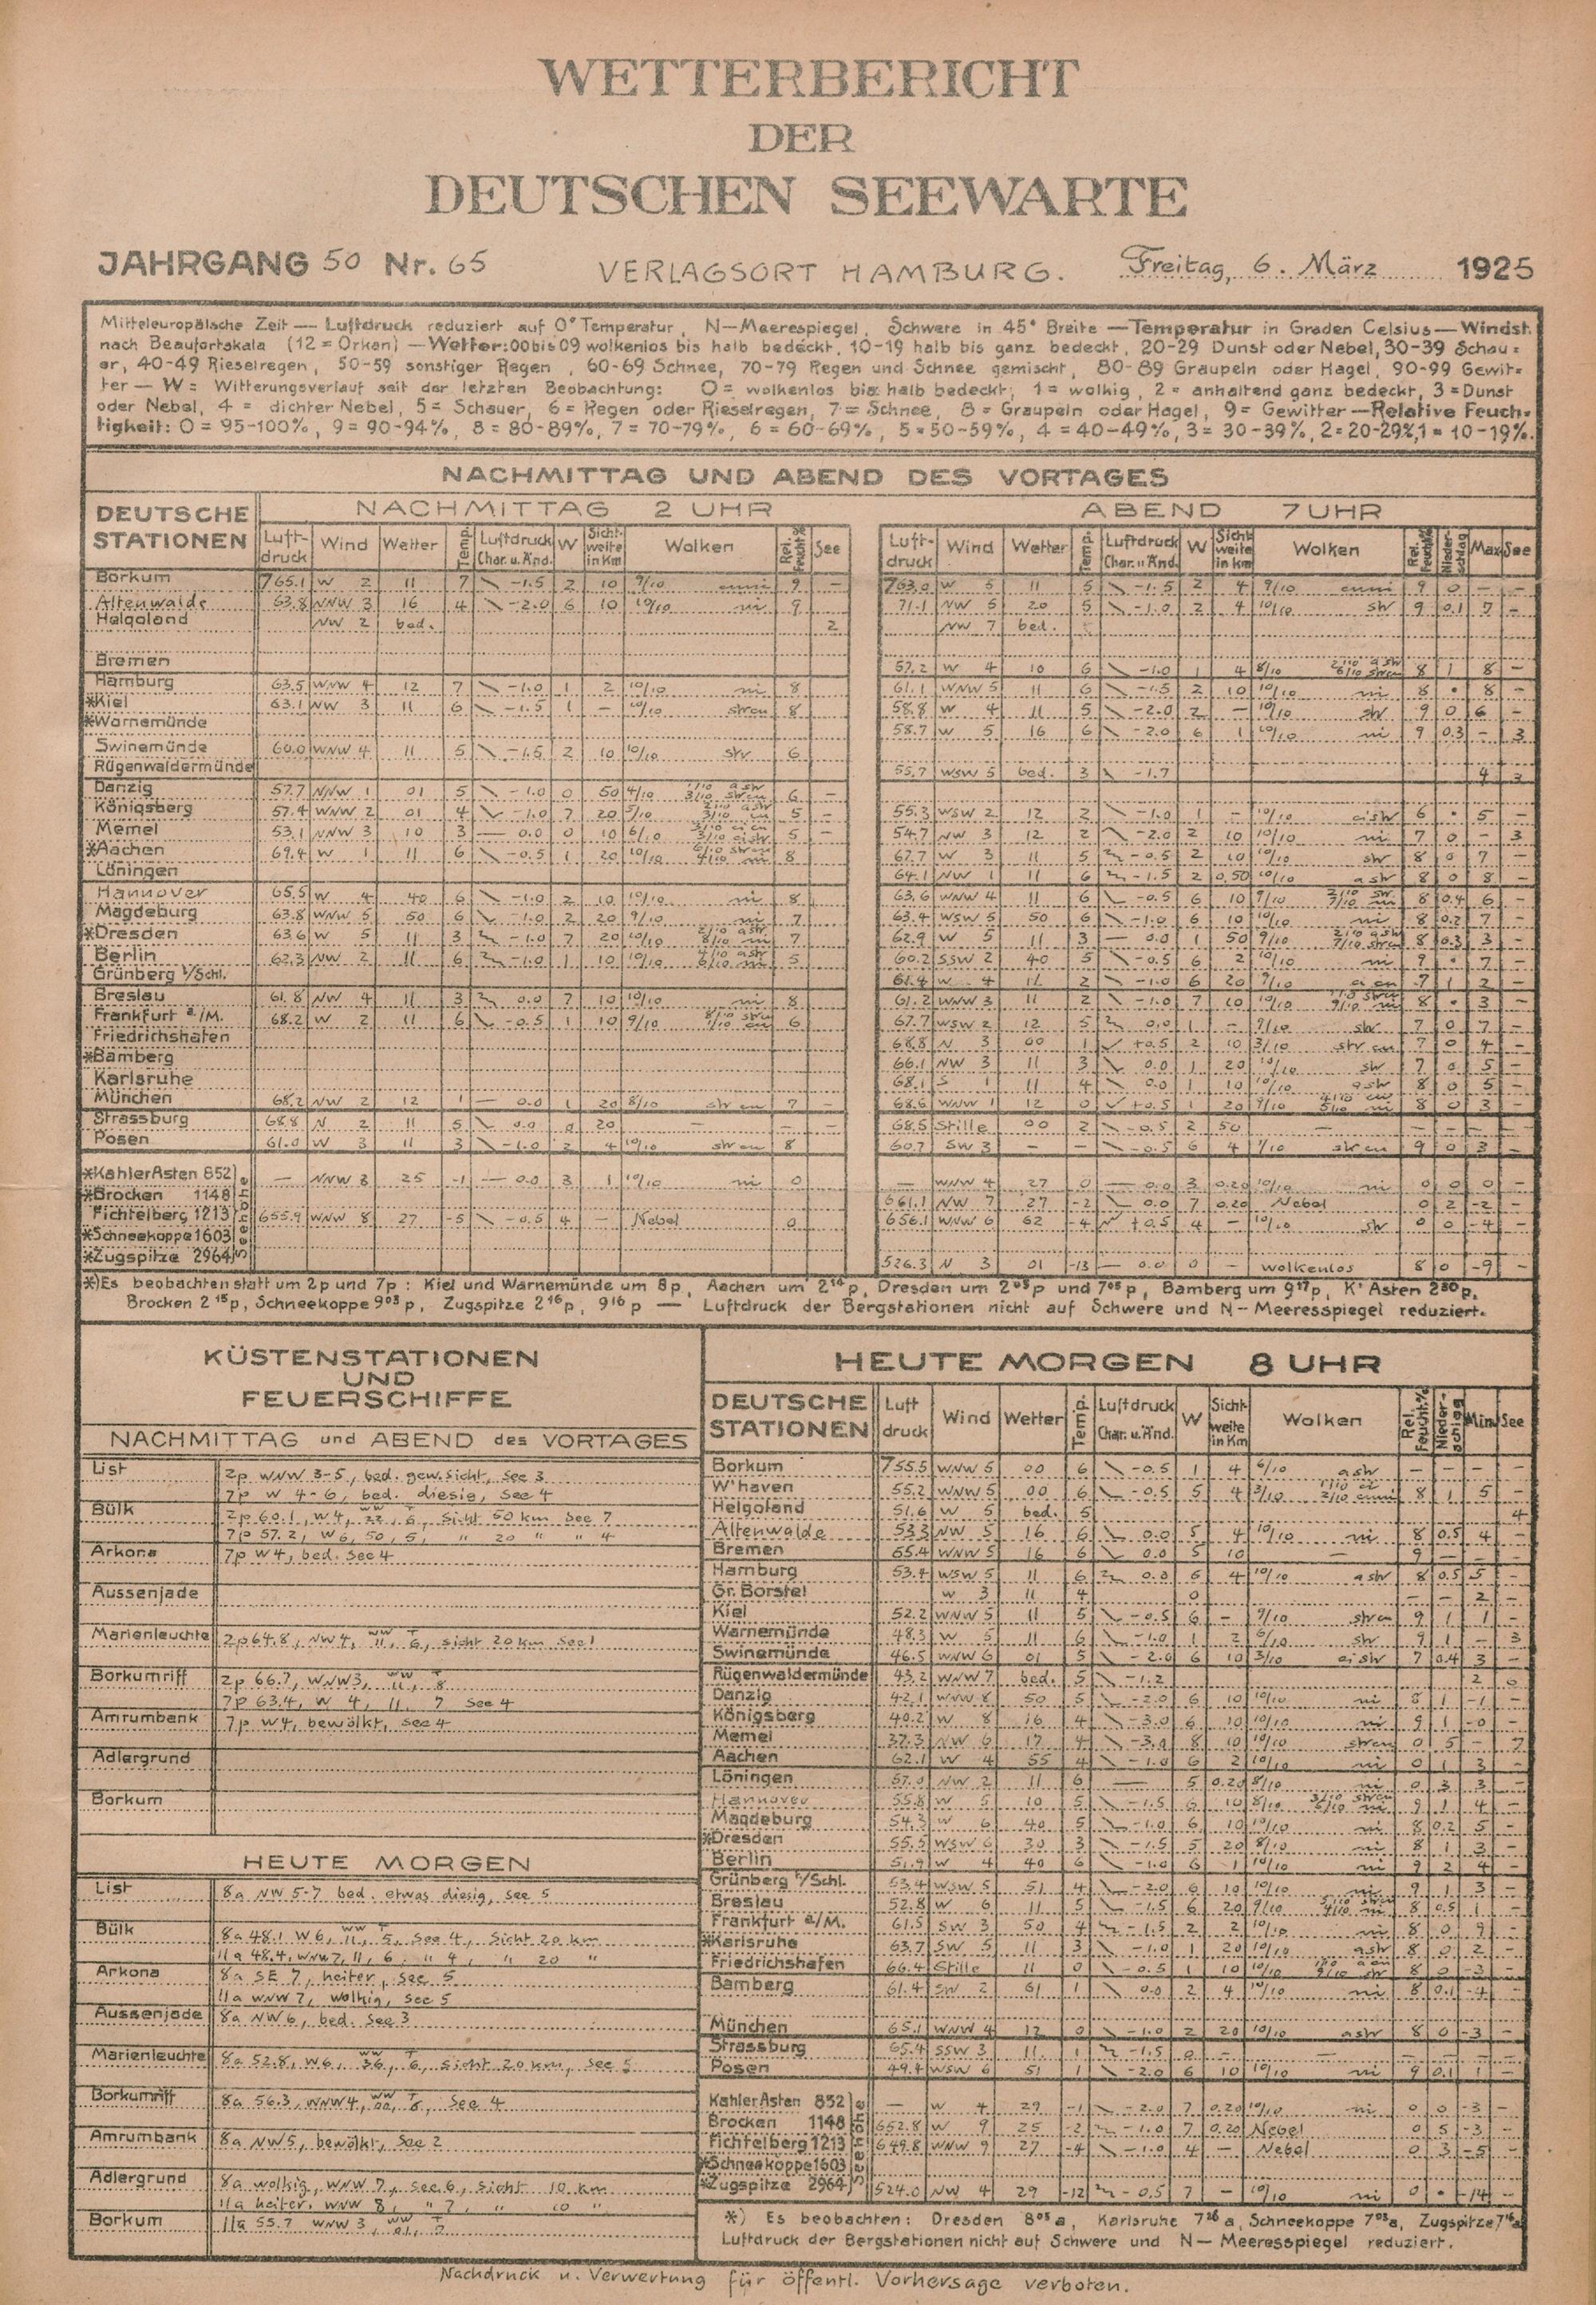 WETTERBERICHT
DER
DEUTSCHEN SEEWARTE
JAHRGANG 50 Nr. 65 VERLAGSORT HAMBURG. Freitag, 6. März 1925
Mitteleuropäische Zeit — Luftdruck reduziert auf 0° Temperatur, N—Meerespiegel, Schwere in 45° Breite — Temperatur in Graden Celsius — Windst.
nach Beaufortskala (12 = Orkan) — Wetter: 00 bis 09 wolkenlos bis halb bedeckt, 10-19 halb bis ganz bedeckt, 20-29 Dunst oder Nebel, 30-39 Schau=
er, 40-49 Rieselregen, 50-59 sonstiger Regen, 60-69 Schnee, 70-79 Regen und Schnee gemischt, 80-89 Graupeln oder Hagel, 90-99 Gewit=
ter — W = Witterungsverlauf seit der letzten Beobachtung: 0 = wolkenlos bis halb bedeckt, 1 = wolkig, 2 = anhaltend ganz bedeckt, 3 = Dunst
oder Nebel, 4 = dichter Nebel, 5 = Schauer, 6 = Regen oder Rieselregen, 7 = Schnee, 8 = Graupeln oder Hagel, 9 = Gewitter — Relative Feuch=
tigkeit: 0 = 95-100%, 9 = 90-94%, 8 = 80-89%, 7 = 70-79%, 6 = 60-69%, 5 = 50-59%, 4 = 40-49%, 3 = 30-39%, 2 = 20-29%, 1 = 10-19%.
NACHMITTAG UND ABEND DES VORTAGES
DEUTSCHE STATIONEN
NACHMITTAG 2 UHR ABEND 7 UHR
Luft-druck Wind Wetter Temp. Luftdruck Char. u. Änd. W Sichtweite in Km Wolken Rel. Feucht.% See
Luft-druck Wind Wetter Temp. Luftdruck Char. u. Änd. W Sichtweite in Km Wolken Rel. Feucht.% Nieder-schlag Max See
Borkum 765.1 W 2 11 7 -1.5 2 10 9/10 9 — 763.0 W 5 11 5 -1.5 2 4 9/10 9 0 — —
Altenwalde 63.8 NNW 3 16 4 -2.0 6 10 10/10 ni 9 71.1 NW 5 20 5 -1.0 2 4 10/10 str 9 0.1 7 —
Helgoland NW 2 bed. 2 NW 7 bed.
Bremen 57.2 W 4 10 6 -1.0 1 4 8/10 8 1 8 —
Hamburg 63.5 WNW 4 12 7 -1.0 1 2 10/10 ni 8 61.1 WNW 5 11 6 -1.5 2 10 10/10 ni 8 • 8 —
*Kiel 63.1 NW 3 11 6 -1.5 1 — 10/10 strcu 8 58.8 W 4 11 5 -2.0 2 — 10/10 str 9 0 6 —
*Warnemünde 58.7 W 5 16 6 -2.0 6 1 10/10 ni 9 0.3 — 3
Swinemünde 60.0 WNW 4 11 5 -1.5 2 10 10/10 str 6
Rügenwaldermünde 55.7 WSW 5 bed. 3 -1.7 4 3
Danzig 57.7 NNW 1 01 5 -1.0 0 50 4/10 6 —
Königsberg 57.4 WNW 2 01 4 -1.0 7 20 5/10 5 — 55.3 WSW 2 12 2 -1.0 1 — 10/10 cistr 6 • 5 —
Memel 53.1 NNW 3 10 3 — 0.0 0 10 6/10 5 — 54.7 NW 3 12 2 -2.0 2 10 10/10 ni 7 0 — 3
*Aachen 69.4 W 1 11 6 -0.5 1 20 10/10 8 67.7 W 3 11 5 -0.5 2 10 10/10 str 8 0 7 —
Löningen 64.1 NW 1 11 6 -1.5 2 0.50 10/10 astr 8 0 8 —
Hannover 65.5 W 4 40 6 -1.0 2 10 10/10 ni 8 63.6 WNW 4 11 6 -0.5 6 10 9/10 8 0.4 6 —
Magdeburg 63.8 WNW 5 50 6 -1.0 2 20 9/10 ni 7 63.4 WSW 5 50 6 -1.0 6 10 10/10 ni 8 0.2 7 —
*Dresden 63.6 W 5 11 3 -1.0 7 20 10/10 7 62.9 W 5 11 3 — 0.0 1 50 9/10 8 0.3 3 —
Berlin 62.3 NW 2 11 6 -1.0 1 10 10/10 5 60.2 SSW 2 40 5 -0.5 6 2 10/10 ni 9 • 7 —
Grünberg i/Schl. 61.4 W 4 12 2 -1.0 6 20 9/10 7 1 2 —
Breslau 61.8 NW 4 11 3 0.0 7 10 10/10 ni 8 61.2 WNW 3 11 2 -1.0 7 10 10/10 8 • 3 —
Frankfurt a/M. 68.2 W 2 11 6 -0.5 1 10 9/10 6 67.7 WSW 2 12 5 0.0 1 — 9/10 str 7 0 7 —
Friedrichshafen 68.8 N 3 00 1 +0.5 2 10 3/10 strcu 7 0 4 —
*Bamberg 66.1 NW 3 11 3 0.0 1 20 10/10 str 7 0 5 —
Karlsruhe 68.1 S 1 11 4 0.0 1 10 10/10 astr 8 0 5 —
München 68.2 NW 2 12 1 — 0.0 1 20 8/10 strcu 7 — 68.6 WNW 1 12 0 +0.5 1 20 9/10 8 0 3 —
Strassburg 68.8 N 2 11 5 0.0 0 20 — — — 68.5 Stille 00 2 -0.5 2 50 — — — — —
Posen 61.0 W 3 11 3 -1.0 2 4 10/10 strcu 8 60.7 SW 3 — — -0.5 6 4 9/10 strcu 9 0 3 —
Seehöhe
*Kahler Asten 852 — NNW 3 25 -1 — 0.0 3 1 10/10 ni 0 — WNW 4 27 0 — 0.0 3 0.20 10/10 ni 0 0 0 —
*Brocken 1148 661.1 NW 7 27 -2 0.0 7 0.20 Nebel 0 2 -2 —
Fichtelberg 1213 655.9 WNW 8 27 -5 -0.5 4 — Nebel 0 656.1 WNW 6 62 -4 +0.5 4 — 10/10 str 0 0 -4 —
*Schneekoppe 1603
*Zugspitze 2964 526.3 N 3 01 -13 — 0.0 0 — wolkenlos 8 0 -9 —
*) Es beobachten statt um 2p und 7p: Kiel und Warnemünde um 8p, Aachen um 2 14 p, Dresden um 2 05 p und 7 05 p, Bamberg um 9 17 p, K' Asten 2 30 p,
Brocken 2 15 p, Schneekoppe 9 03 p, Zugspitze 2 16 p, 9 16 p — Luftdruck der Bergstationen nicht auf Schwere und N—Meeresspiegel reduziert.
KÜSTENSTATIONEN
UND
FEUERSCHIFFE
NACHMITTAG und ABEND des VORTAGES
List 2p WNW 3-5, bed. gew. sicht, see 3
7p W 4-6, bed. diesig, see 4
Bülk 2p 60.1, W4, 22, 6, Sicht 50 km See 7
7p 57.2, W6, 50, 5, " 20 " " 4
Arkona 7p W4, bed. see 4
Aussenjade
Marienleuchte 2p 64.8, NW4, 11, 6, sicht 20 km See 1
Borkumriff 2p 66.7, WNW3, 11, 8
7p 63.4, W 4, 11, 7 see 4
Amrumbank 7p W4, bewölkt, see 4
Adlergrund
Borkum
HEUTE MORGEN
List 8a NW 5-7 bed. etwas diesig, see 5
Bülk 8a 48.1 W6, 11, 5, see 4, Sicht 20 km
11a 48.4, WNW7, 11, 6 " 4, " 20 "
Arkona 8a SE 7, heiter, see 5
11a WNW 7, wolkig, see 5
Aussenjade 8a NW6, bed. see 3
Marienleuchte 8a 52.8, W6, 36, 6, sicht 20 km, see 5
Borkumriff 8a 56.3, WNW4, see 4
Amrumbank 8a NW5, bewölkt, see 2
Adlergrund 8a wolkig, WNW 7, see 6, sicht 10 km
11a heiter, WNW 8, " 7, " 10 "
Borkum 11a 55.7 WNW 3
HEUTE MORGEN 8 UHR
DEUTSCHE STATIONEN Luft druck Wind Wetter Temp. Luftdruck Char. u. Änd. W Sicht-weite in Km Wolken Rel. Feucht.% Nieder-schlag Min See
Borkum 755.5 WNW 5 00 6 -0.5 1 4 6/10 astr — — — —
W'haven 55.2 WNW 5 00 6 -0.5 5 4 3/10 8 1 5 —
Helgoland 51.6 W 5 bed. 5 4
Altenwalde 53.3 NW 5 16 6 0.0 5 4 10/10 ni 8 0.5 4 —
Bremen 55.4 WNW 5 16 6 0.0 5 10 — 9 — — —
Hamburg 53.4 WSW 5 11 6 0.0 6 4 10/10 astr 8 0.5 5 —
Gr. Borstel W 3 11 4 0 — — 2 —
Kiel 52.2 WNW 5 11 5 -0.5 6 — 9/10 strcu 9 1 1 —
Warnemünde 48.3 W 5 11 6 -1.0 1 2 6/10 str 9 1 — 3
Swinemünde 46.5 WNW 6 01 5 -2.0 6 10 3/10 cistr 7 0.4 3 —
Rügenwaldermünde 43.2 WNW 7 bed. 5 -1.2 2 6
Danzig 42.1 WNW 8 50 5 -2.0 6 10 10/10 ni 8 1 -1 —
Königsberg 40.2 W 8 16 4 -3.0 6 10 10/10 ni 9 1 -0 —
Memel 37.3 NW 6 17 4 -3.0 8 10 10/10 strcu 0 5 — 7
Aachen 62.1 W 4 55 4 -1.0 6 2 10/10 ni 0 1 3 —
Löningen 57.0 NW 2 11 6 — 5 0.20 8/10 ni 0 3 3 —
Hannover 55.8 W 5 10 5 -1.5 6 10 8/10 9 1 4 —
Magdeburg 54.3 W 6 40 5 -1.0 6 10 10/10 ni 8 0.2 5 —
*Dresden 55.5 WSW 6 30 3 -1.5 5 20 8/10 ni 8 1 3 —
Berlin 51.9 W 4 40 6 -1.0 6 1 10/10 ni 9 2 4 —
Grünberg i/Schl. 53.4 WSW 5 51 4 -2.0 6 10 10/10 ni 9 1 3 —
Breslau 52.8 W 6 11 5 -1.5 6 20 9/10 8 0.5 1 —
Frankfurt a/M. 61.5 SW 3 50 4 -1.5 2 2 10/10 ni 8 0 9 —
*Karlsruhe 63.7 SW 5 11 3 -1.0 1 20 10/10 astr 8 0 2 —
Friedrichshafen 66.4 Stille 11 0 -0.5 1 10 10/10 8 0 -3 —
Bamberg 61.4 SW 2 61 1 0.0 2 4 10/10 ni 8 0.1 —
München 65.1 WNW 4 12 0 -1.0 2 20 10/10 astr 8 0 -3 —
Strassburg 65.4 SSW 3 11 1 -1.5 0 — — — — — —
Posen 49.4 WSW 6 51 1 -2.0 6 10 10/10 ni 9 0.1 1 —
Seehöhe
Kahler Asten 852 — W 4 29 -1 -2.0 7 0.20 10/10 ni 0 0 -3 —
Brocken 1148 652.8 W 9 25 -2 -1.0 7 0.20 Nebel 0 5 -3 —
Fichtelberg 1213 649.8 WNW 9 27 -4 -1.0 4 — Nebel 0 3 -5 —
*Schneekoppe 1603
*Zugspitze 2964 524.0 NW 4 29 -12 -0.5 7 — 10/10 ni 0 • -14 —
*) Es beobachten: Dresden 8 05 a, Karlsruhe 7 26 a, Schneekoppe 7 03 a, Zugspitze 7 16 a
Luftdruck der Bergstationen nicht auf Schwere und N—Meeresspiegel reduziert.
Nachdruck u. Verwertung für öffentl. Vorhersage verboten.